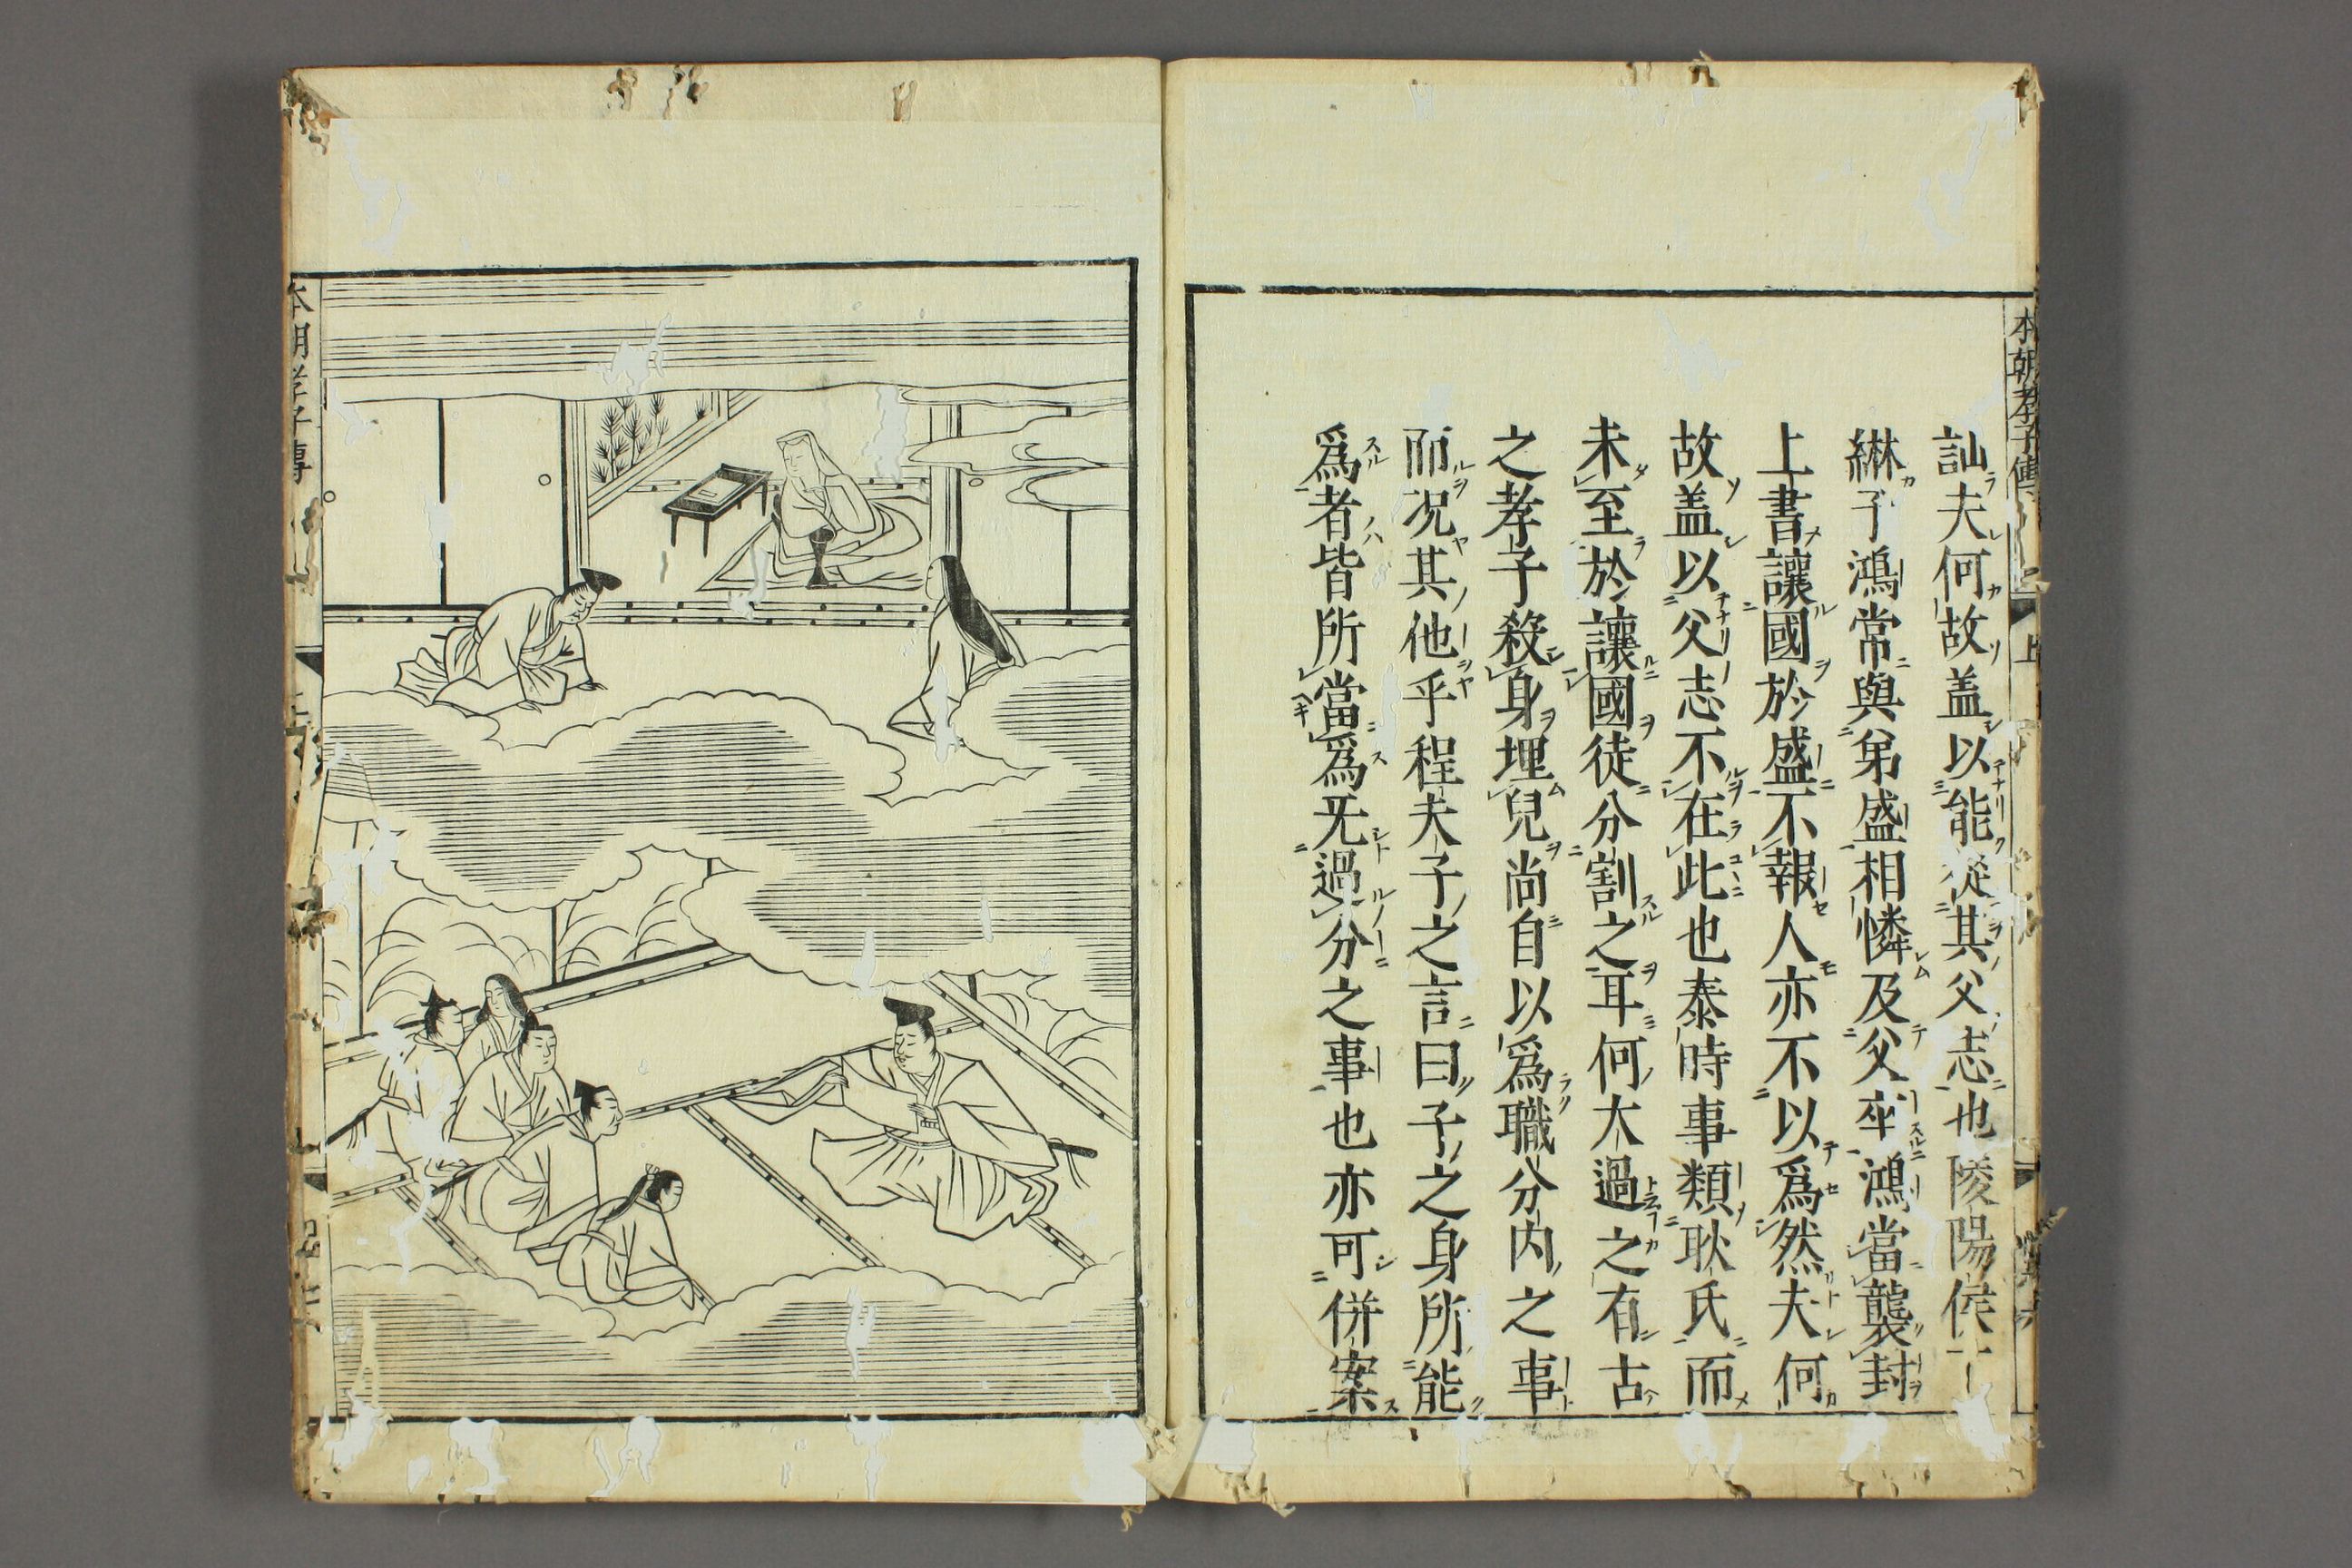 本朝孝子傳
上
訕夫何故盖以能從其父志也陵陽侯丁
綝子鴻常與弟盛相憐及父卒鴻當襲封
上書讓國於盛不報人亦不以爲然夫何
故盖以父志不在此也泰時事類耿氏而
未至於讓國徒分割之耳何大過之有古
之孝子殺身埋兒尚自以爲職分内之事
而況其他乎程夫子之言曰子之身所能
爲者皆所當爲无過分之事也亦可併案
本朝孝子傳